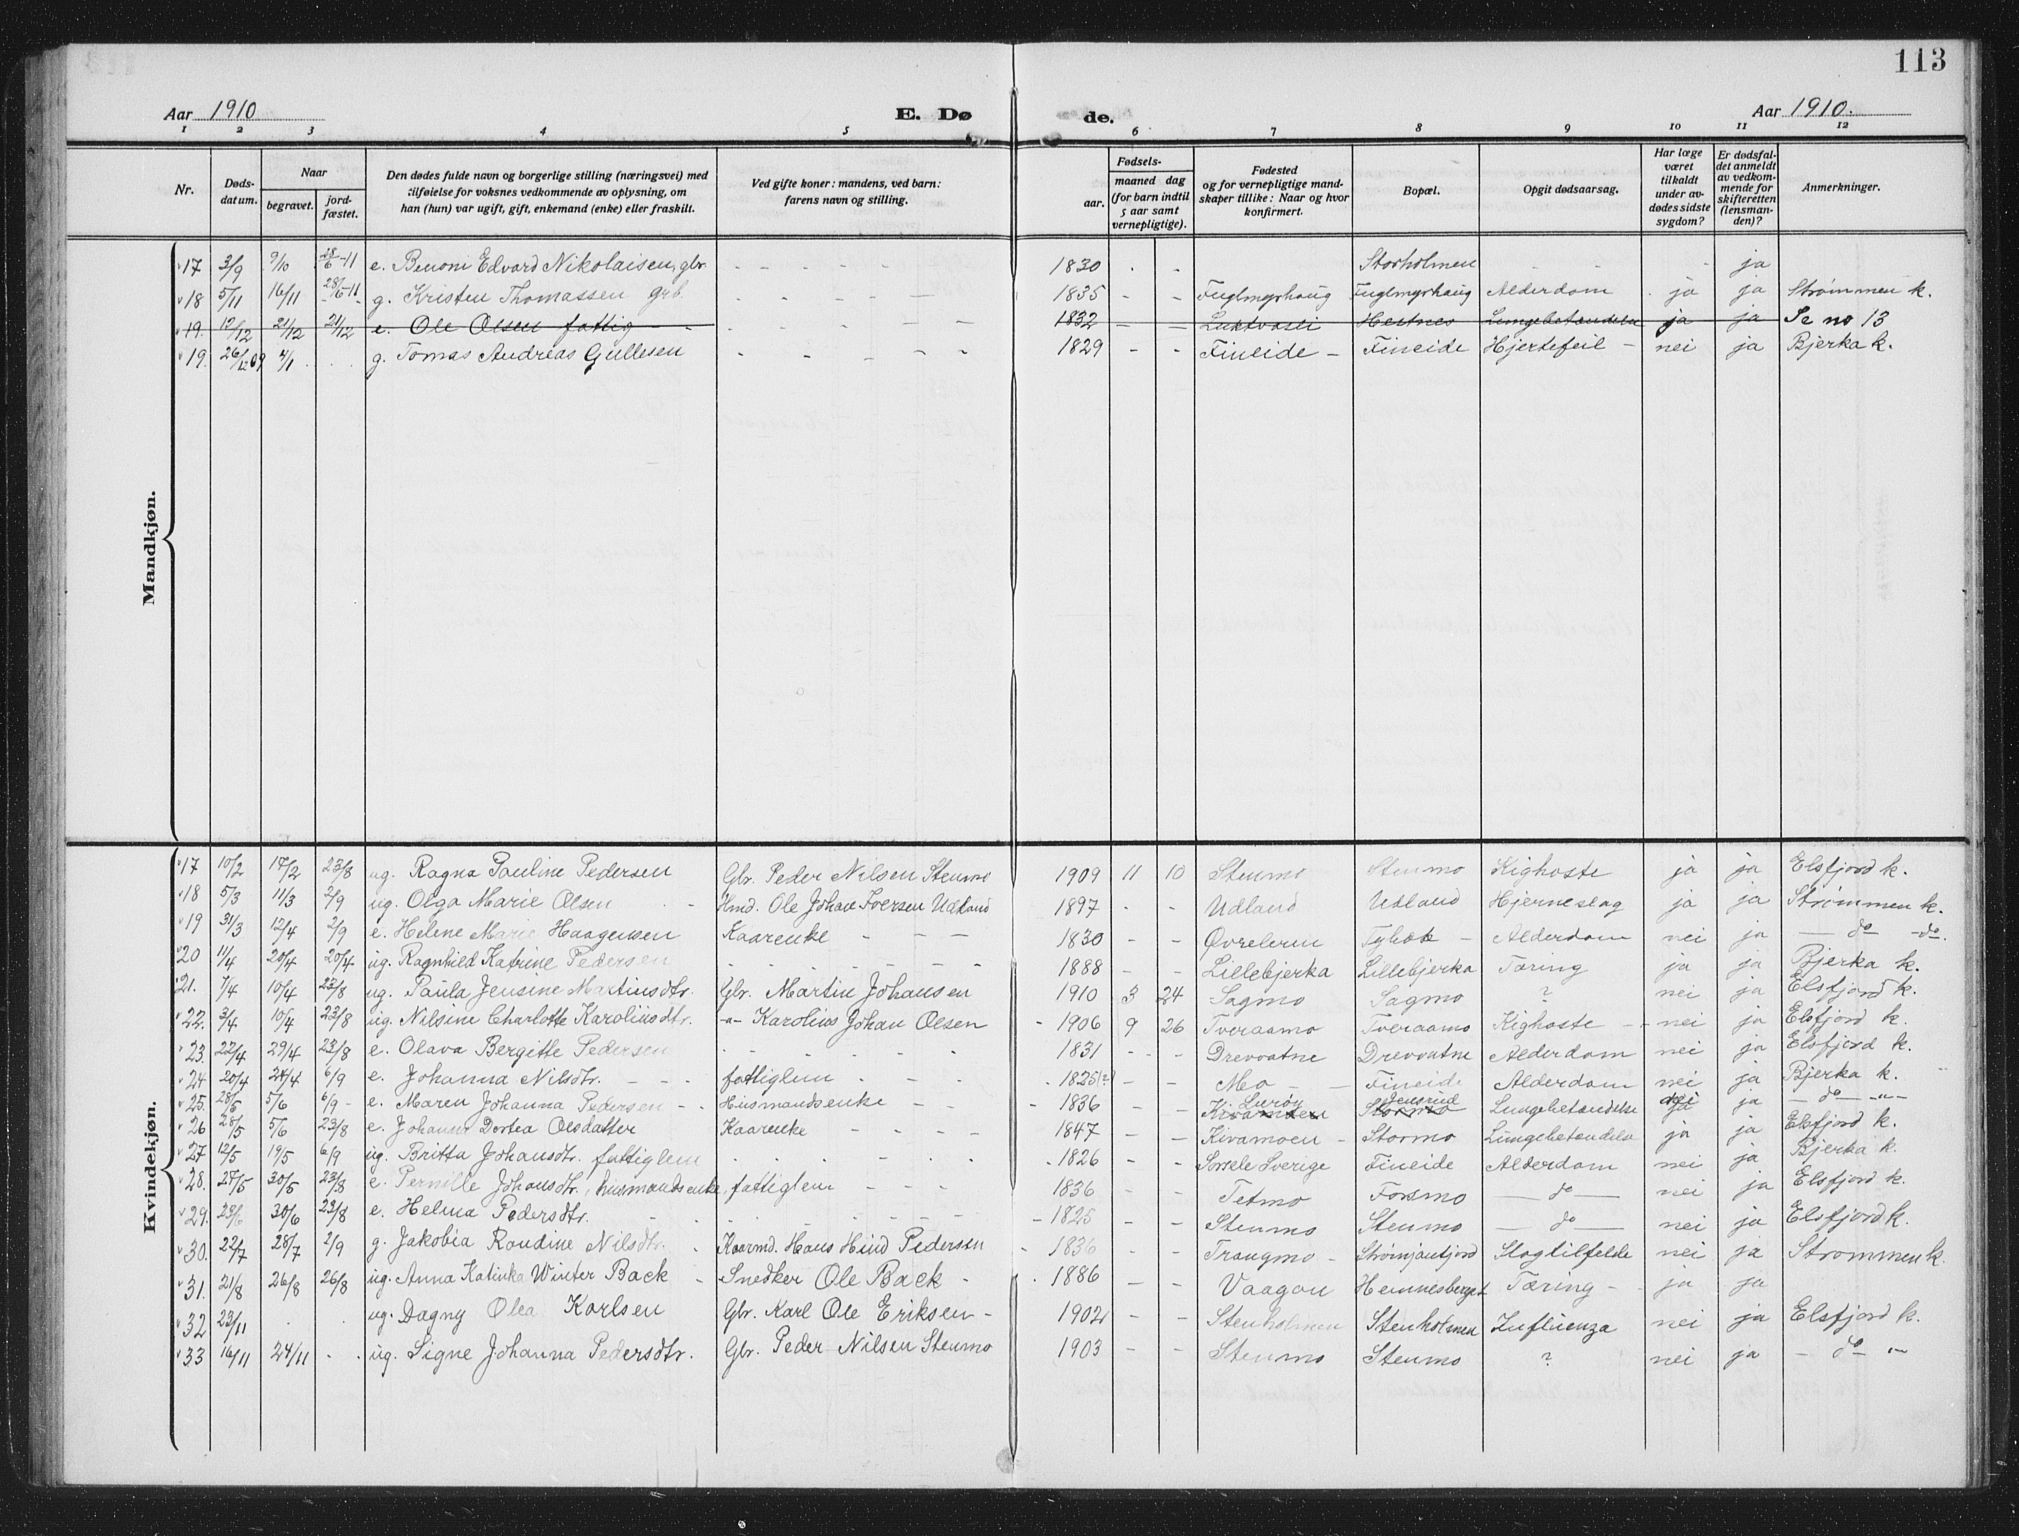 113
Aar 1910
E. Dø
de.
Aar 1910.
1 2 3 4 5 6 7 8 9 10 11 12
Nr.
Døds-
datum.
Naar
begravet.
jord-
fæstet.
Den dødes fulde navn og borgerlige stilling (næringsvei) med
tilføielse for voksnes vedkommende av oplysning, om
han (hun) var ugift, gift, enkemand (enke) eller fraskilt.
Ved gifte koner: mandens, ved barn:
farens navn og stilling.
Fødsels-
aar.
maaned dag
(for barn indtil
5 aar samt
vernepligtige).
Fødested
og for vernepligtige mand-
skaper tillike: Naar og hvor
konfirmert.
Bopæl.
Opgit dødsaarsag.
Har læge
været
tilkaldt
under av-
dødes sidste
sygdom?
Er dødsfal-
det anmeldt
av vedkom-
mende for
skifteretten
(lensman-
den)?
Anmerkninger.
Mandkjøn.
17 3/9 9/10 28/6-11 e. Benoni Edvard Nikolaisen, gbr. - - - - - 1830 - - Storholmen - - ja
18 5/11 16/11 28/5-11 g. Kristen Thomassen grb. - - - - - 1835 - - Fuglmyrhaug Fuglmyrhaug Alderdom ja ja Strømmen k.
19. 12/12 21/12 21/12 e. Ole Olsen fattig - - - - - 1832 - - Luktvasli Hestnes Lungebetændelse ja ja Se no 13
19. 26/12 09 4/1 g. Tomas Andreas Gullesen - - - - - 1829 - - Fineide - Fineide Hjertefeil - nei ja Bjerka k.
Kvindekjøn.
17 10/2 17/2 23/8 ug. Ragna Pauline Pedersen Gbr. Peder Nilsen Stenmo 1909 11 10 Stenmo Stenmo Kighoste ja ja Elsfjord k.
18 5/3 11/3 2/9 ug. Olga Marie Olsen Hmd. Ole Johan Iversen Udland 1897 - - Udland Udland Hjerneslag ja ja Strømmen k.
19 31/3 12/4 2/9 e. Helene Marie Haagensen Kaarenke - - - 1830 - - Øvreleren - Alderdom nei ja - do - do.
20 11/4 20/4 20/4 ug. Ragnhild Katrine Pedersen - - - - 1888 - - Lillebjerka Lillebjerka Tæring ja ja Bjerka k.
21. 7/4 10/4 23/8 ug. Paula Jensine Martinsdtr. Gbr. Martin Johansen 1910 3 24 Sagmo Sagmo ? nei ja Elsfjord k.
22. 3/4 10/4 23/8 ug. Nilsine Charlotte Karoliusdtr. -"- Karolius Johan Olsen 1906 9 26 Tveraamo Tveraamo Kighoste - nei ja Elsfjord k.
23. 22/4 29/4 23/8 e. Olava Bergitte Pedersen - - - - 1831 - - Drevvatne Drevvatne Alderdom nei ja Elsfjord k.
24. 20/4 24/4 6/9 e. Johanna Nilsdtr. - - fattiglem - - - 1825 - - Mo - - Fineide Alderdom nei ja Bjerka k.
25. 28/5 5/6 6/9 - e. Maren Johanna Pedersen - - Husmandsenke - - - 1836 - - Kivamoen Lurøy Stormo Jensrud Lungebetændelse nei ja - do - "-
26 28/5 5/6 23/8 e. Johanna Dortea Olsdatter Kaarenke - - - - 1847 - - Kivamoen - Stormo Lungebetændelse ja ja Elsfjord k.
27 12/5 19/5 6/9 ug. Britta Johansdtr. fattiglem - - - - 1826 - - Sorsele Sverige Fineide Alderdom nei ja Bjerka k.
28. 27/5 30/5 23/8 e. Pernille Johansdtr., husmandsenke, fattiglem - - - 1836 - - Tetmo Forsmo - do - nei ja Elsfjord k.
29. 23/6 30/6 23/8 e. Helma Pedersdtr. - - - - - 1825 - - Stenmo Stenmo - do - nei ja Elsfjord k.
30. 22/7 28/7 2/9 g. Jakobia Rondine Nilsdtr. Kaarmd. Hans Hind Pedersen 1836 - - Traugmo - Strømjanfjord Slagtilfelde nei ja Strømmen k.
31. 21/8 26/8 26/8 ug. Anna Katinka Winter Back - Snedker Ole Back - 1886 - - Vaagan Hemnesberget Tæring - ja ja
32 23/11 ug. Dagny Olea Karlsen Gbr. Karl Ole Eriksen - 1902 - - Stenholmen Stenholmen Influenza nei ja Elsfjord k.
33 16/11 24/11 - - ug. Signe Johanna Pedersdtr. Gbr. Peder Nilsen Stenmo 1903 - - Stenmo Stenmo ? nei ja - do "-